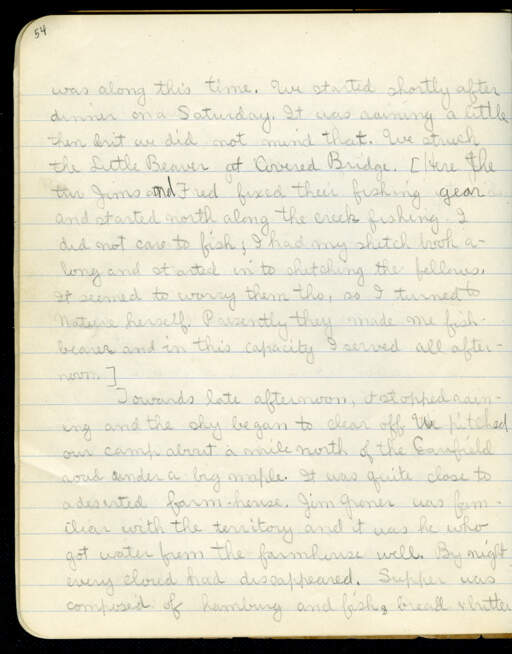 54
was along this time. We started shortly after
dinner on a Saturday. It was raining a little
then but we did not mind that. We struck
the Little Beaver at Covered Bridge. [Here the
two Jims and Fred fixed their fishing gear
and started north along the creek fishing. I
did not care to fish; I had my sketch book a-
long and started in to sketching the fellows.
It seemed to worry them tho, so I turned to
Nature herself. Presently they made me fish-
bearer and in this capacity I served all after-
noon.]
Towards late afternoon, it stopped rain-
ing and the sky began to clear off. We pitched
our camp about a mile north of the Canfield
road under a big maple. It was quite close to
a deserted farm-house. Jim was fam-
iliar with the territory and it was he who
got water from the farmhouse well. By night
every cloud had disappeared. Supper was
composed of hamburg and fish, bread & butter